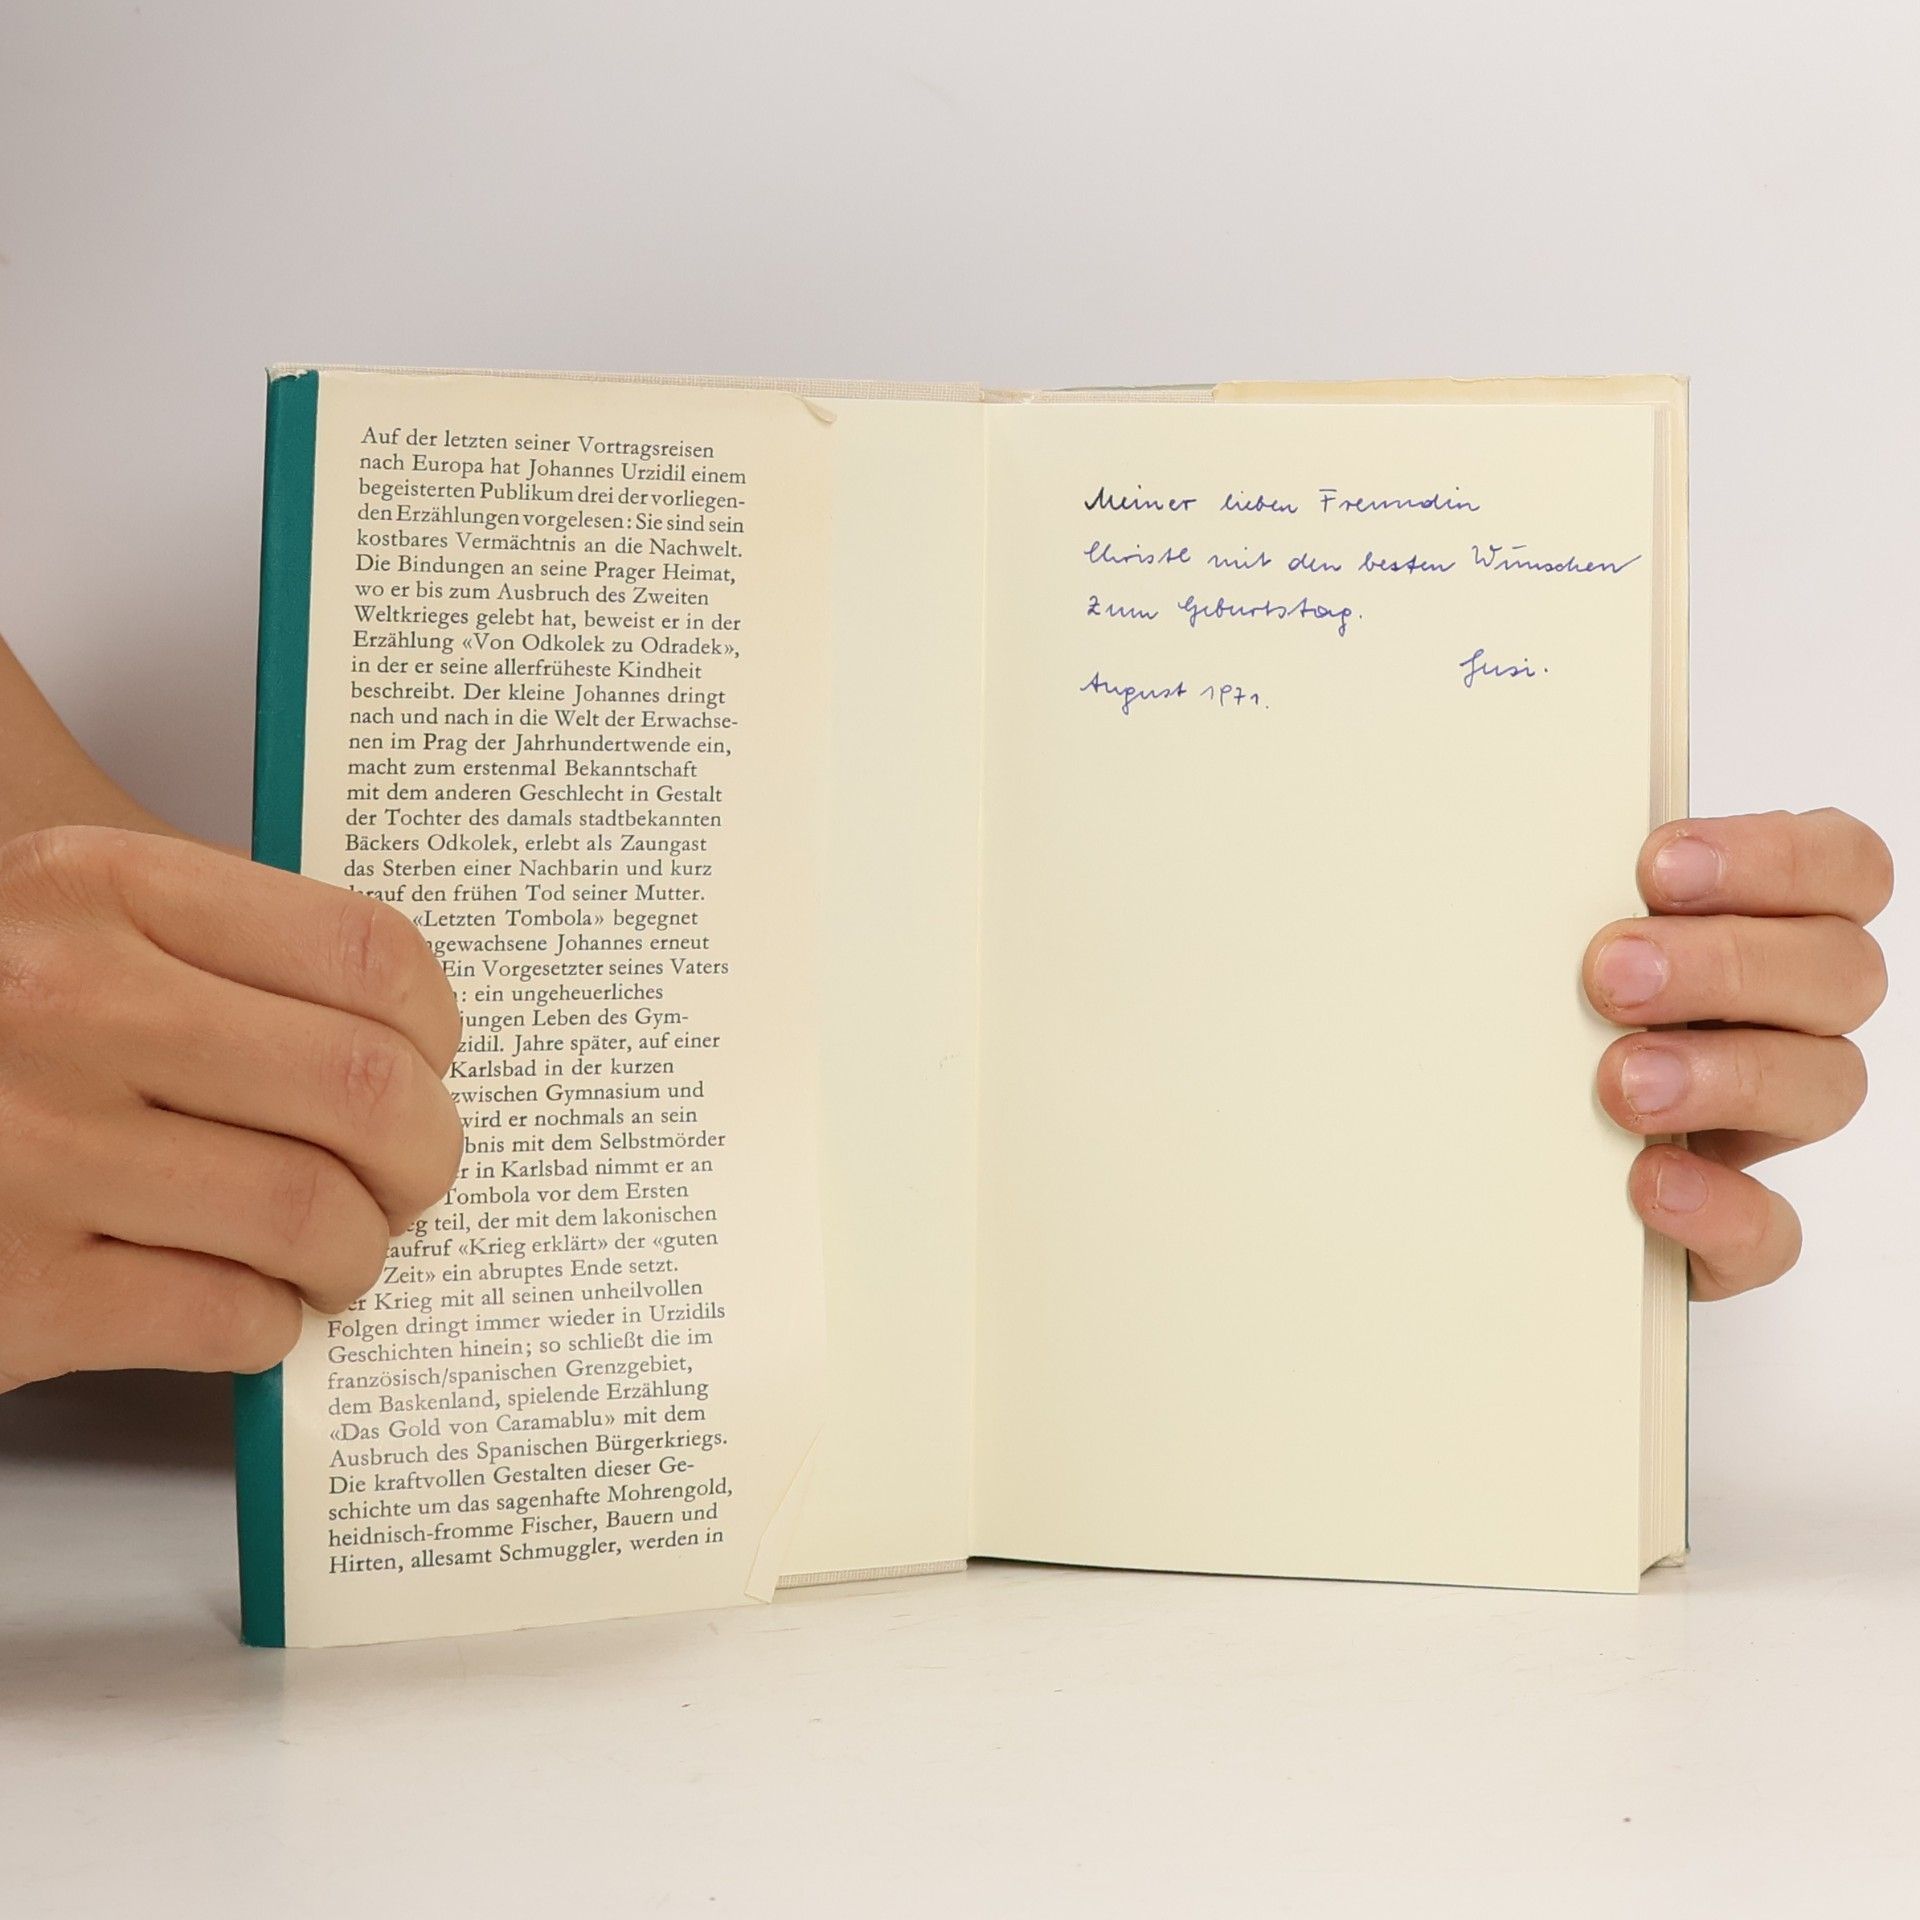 Auf der letzten seiner Vortragsreisen
nach Europa hat Johannes Urzidil einem
begeisterten Publikum drei der vorliegen-
den Erzählungen vorgelesen: Sie sind sein
kostbares Vermächtnis an die Nachwelt.
Die Bindungen an seine Prager Heimat,
wo er bis zum Ausbruch des Zweiten
Weltkrieges gelebt hat, beweist er in der
Erzählung «Von Odkolek zu Odradek»,
in der er seine allerfrüheste Kindheit
beschreibt. Der kleine Johannes dringt
nach und nach in die Welt der Erwachse-
nen im Prag der Jahrhundertwende ein,
macht zum erstenmal Bekanntschaft
mit dem anderen Geschlecht in Gestalt
der Tochter des damals stadtbekannten
Bäckers Odkolek, erlebt als Zaungast
das Sterben einer Nachbarin und kurz
darauf den frühen Tod seiner Mutter.
«Letzten Tombola» begegnet
gewachsene Johannes erneut
Ein Vorgesetzter seines Vaters
: ein ungeheuerliches
jungen Leben des Gym-
zidil. Jahre später, auf einer
Karlsbad in der kurzen
zwischen Gymnasium und
wird er nochmals an sein
bnis mit dem Selbstmörder
r in Karlsbad nimmt er an
Tombola vor dem Ersten
eg teil, der mit dem lakonischen
aufruf «Krieg erklärt» der «guten
Zeit» ein abruptes Ende setzt.
er Krieg mit all seinen unheilvollen
Folgen dringt immer wieder in Urzidils
Geschichten hinein; so schließt die im
französisch/spanischen Grenzgebiet,
dem Baskenland, spielende Erzählung
«Das Gold von Caramablu» mit dem
Ausbruch des Spanischen Bürgerkriegs.
Die kraftvollen Gestalten dieser Ge-
schichte um das sagenhafte Mohrengold,
heidnisch-fromme Fischer, Bauern und
Hirten, allesamt Schmuggler, werden in
Meiner lieben Freundin
Christl mit den besten Wünschen
zum Geburtstag.
Susi.
August 1971.